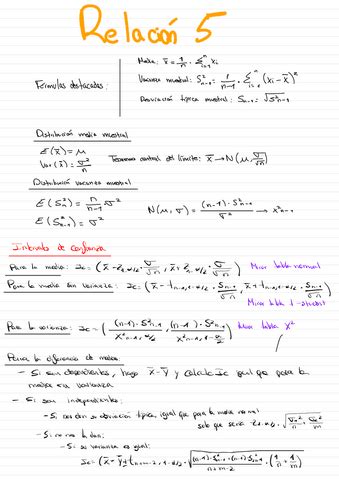 Relación 5
Media: x̄ = 1/n · Σ_{i=1}^{n} xi
Fórmulas destacadas:
Varianza muestral: S²_{n-1} = 1/(n-1) · Σ_{i=1}^{n} (xi - x̄)²
Desviación típica muestral: S_{n-1} = √(S²_{n-1})
Distribución media muestral
E(x̄) = μ
Var(x̄) = σ²/n
Teorema central del límite: x̄ → N(μ, σ/√n)
Distribución varianza muestral
E(S²_n) = n/(n-1) σ²
E(S²_{n-1}) = σ²
N(μ, σ) = (n-1)·S²_{n-1}/σ² → x²_{n-1}
Intervalo de confianza
Para la media: Ic = (x̄ - z_{1-α/2} · σ/√n, x̄ + z_{1-α/2} · σ/√n) Mirar tabla normal
Para la media sin varianza: Ic = (x̄ - t_{n-1, 1-α/2} · S_{n-1}/√n, x̄ + t_{n-1, 1-α/2} · S_{n-1}/√n)
Mirar tabla t-student
Para la varianza: Ic = ((n-1)·S²_{n-1}/X²_{n-1}, (n-1)·S²_{n-1}/X²_{n-1}) Mirar tabla X²
Para la diferencia de medias:
- Si son dependientes, hago x̄ - ȳ y calculo Ic igual que para la
media sin varianza
- Si son independientes:
- Si nos dan desviación típica, igual que para la media normal
solo que sería
- Si no me la dan:
- Si varianza es igual: